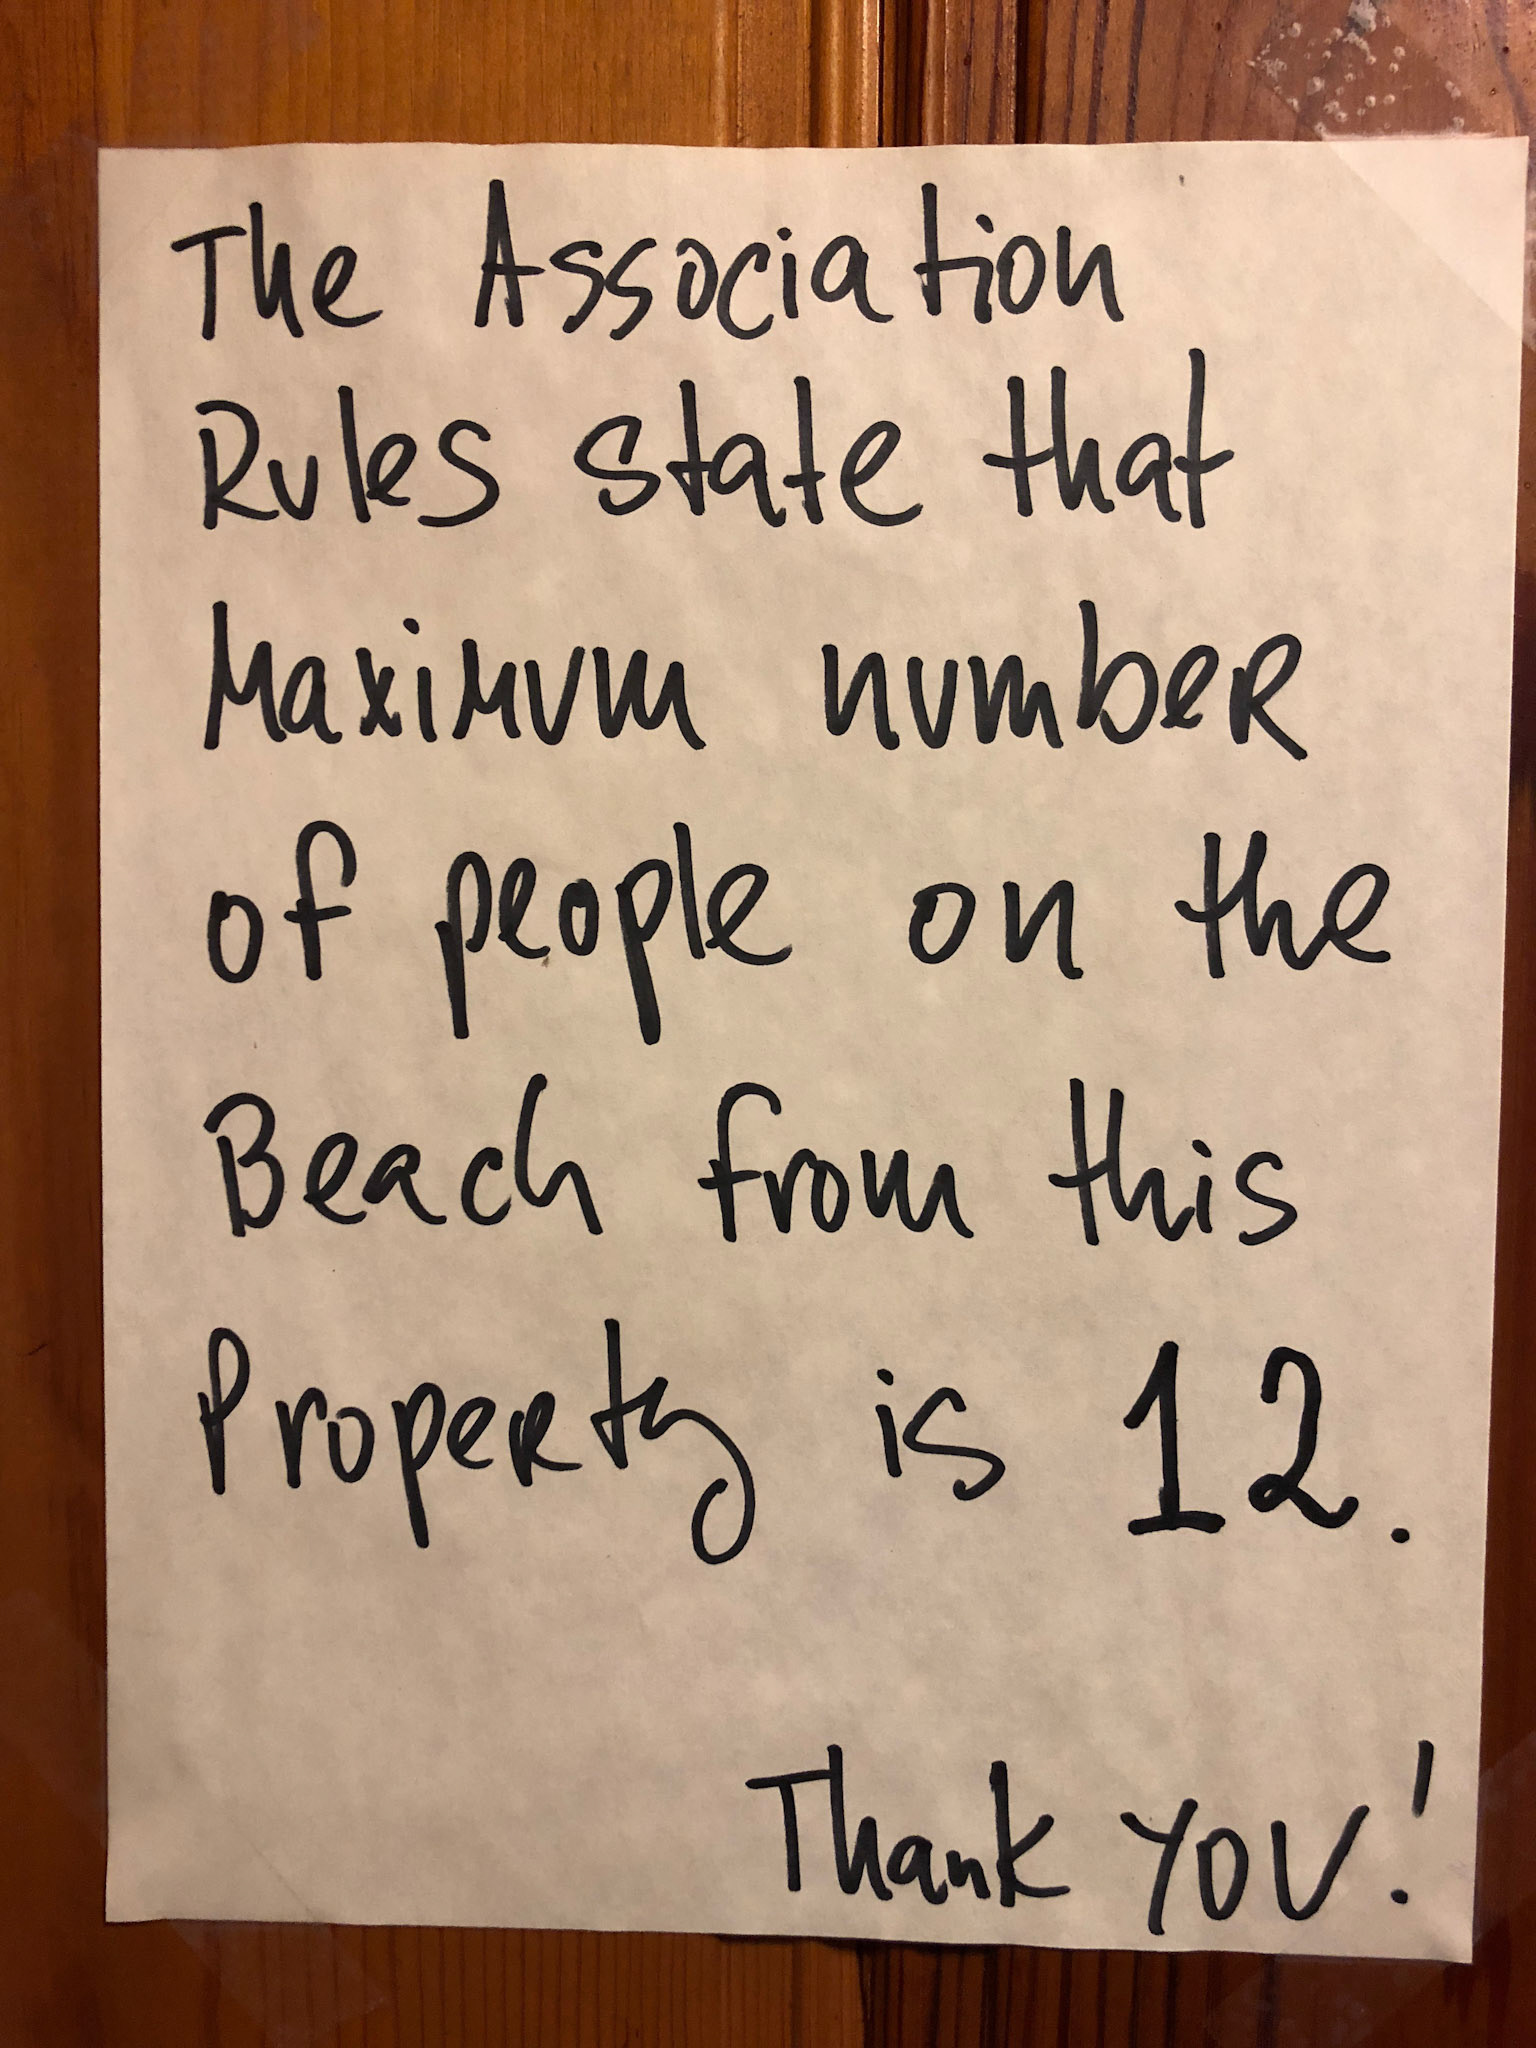 The Association
Rules state that
Maximum number
of people on the
Beach from this
Property is 12.
Thank you!